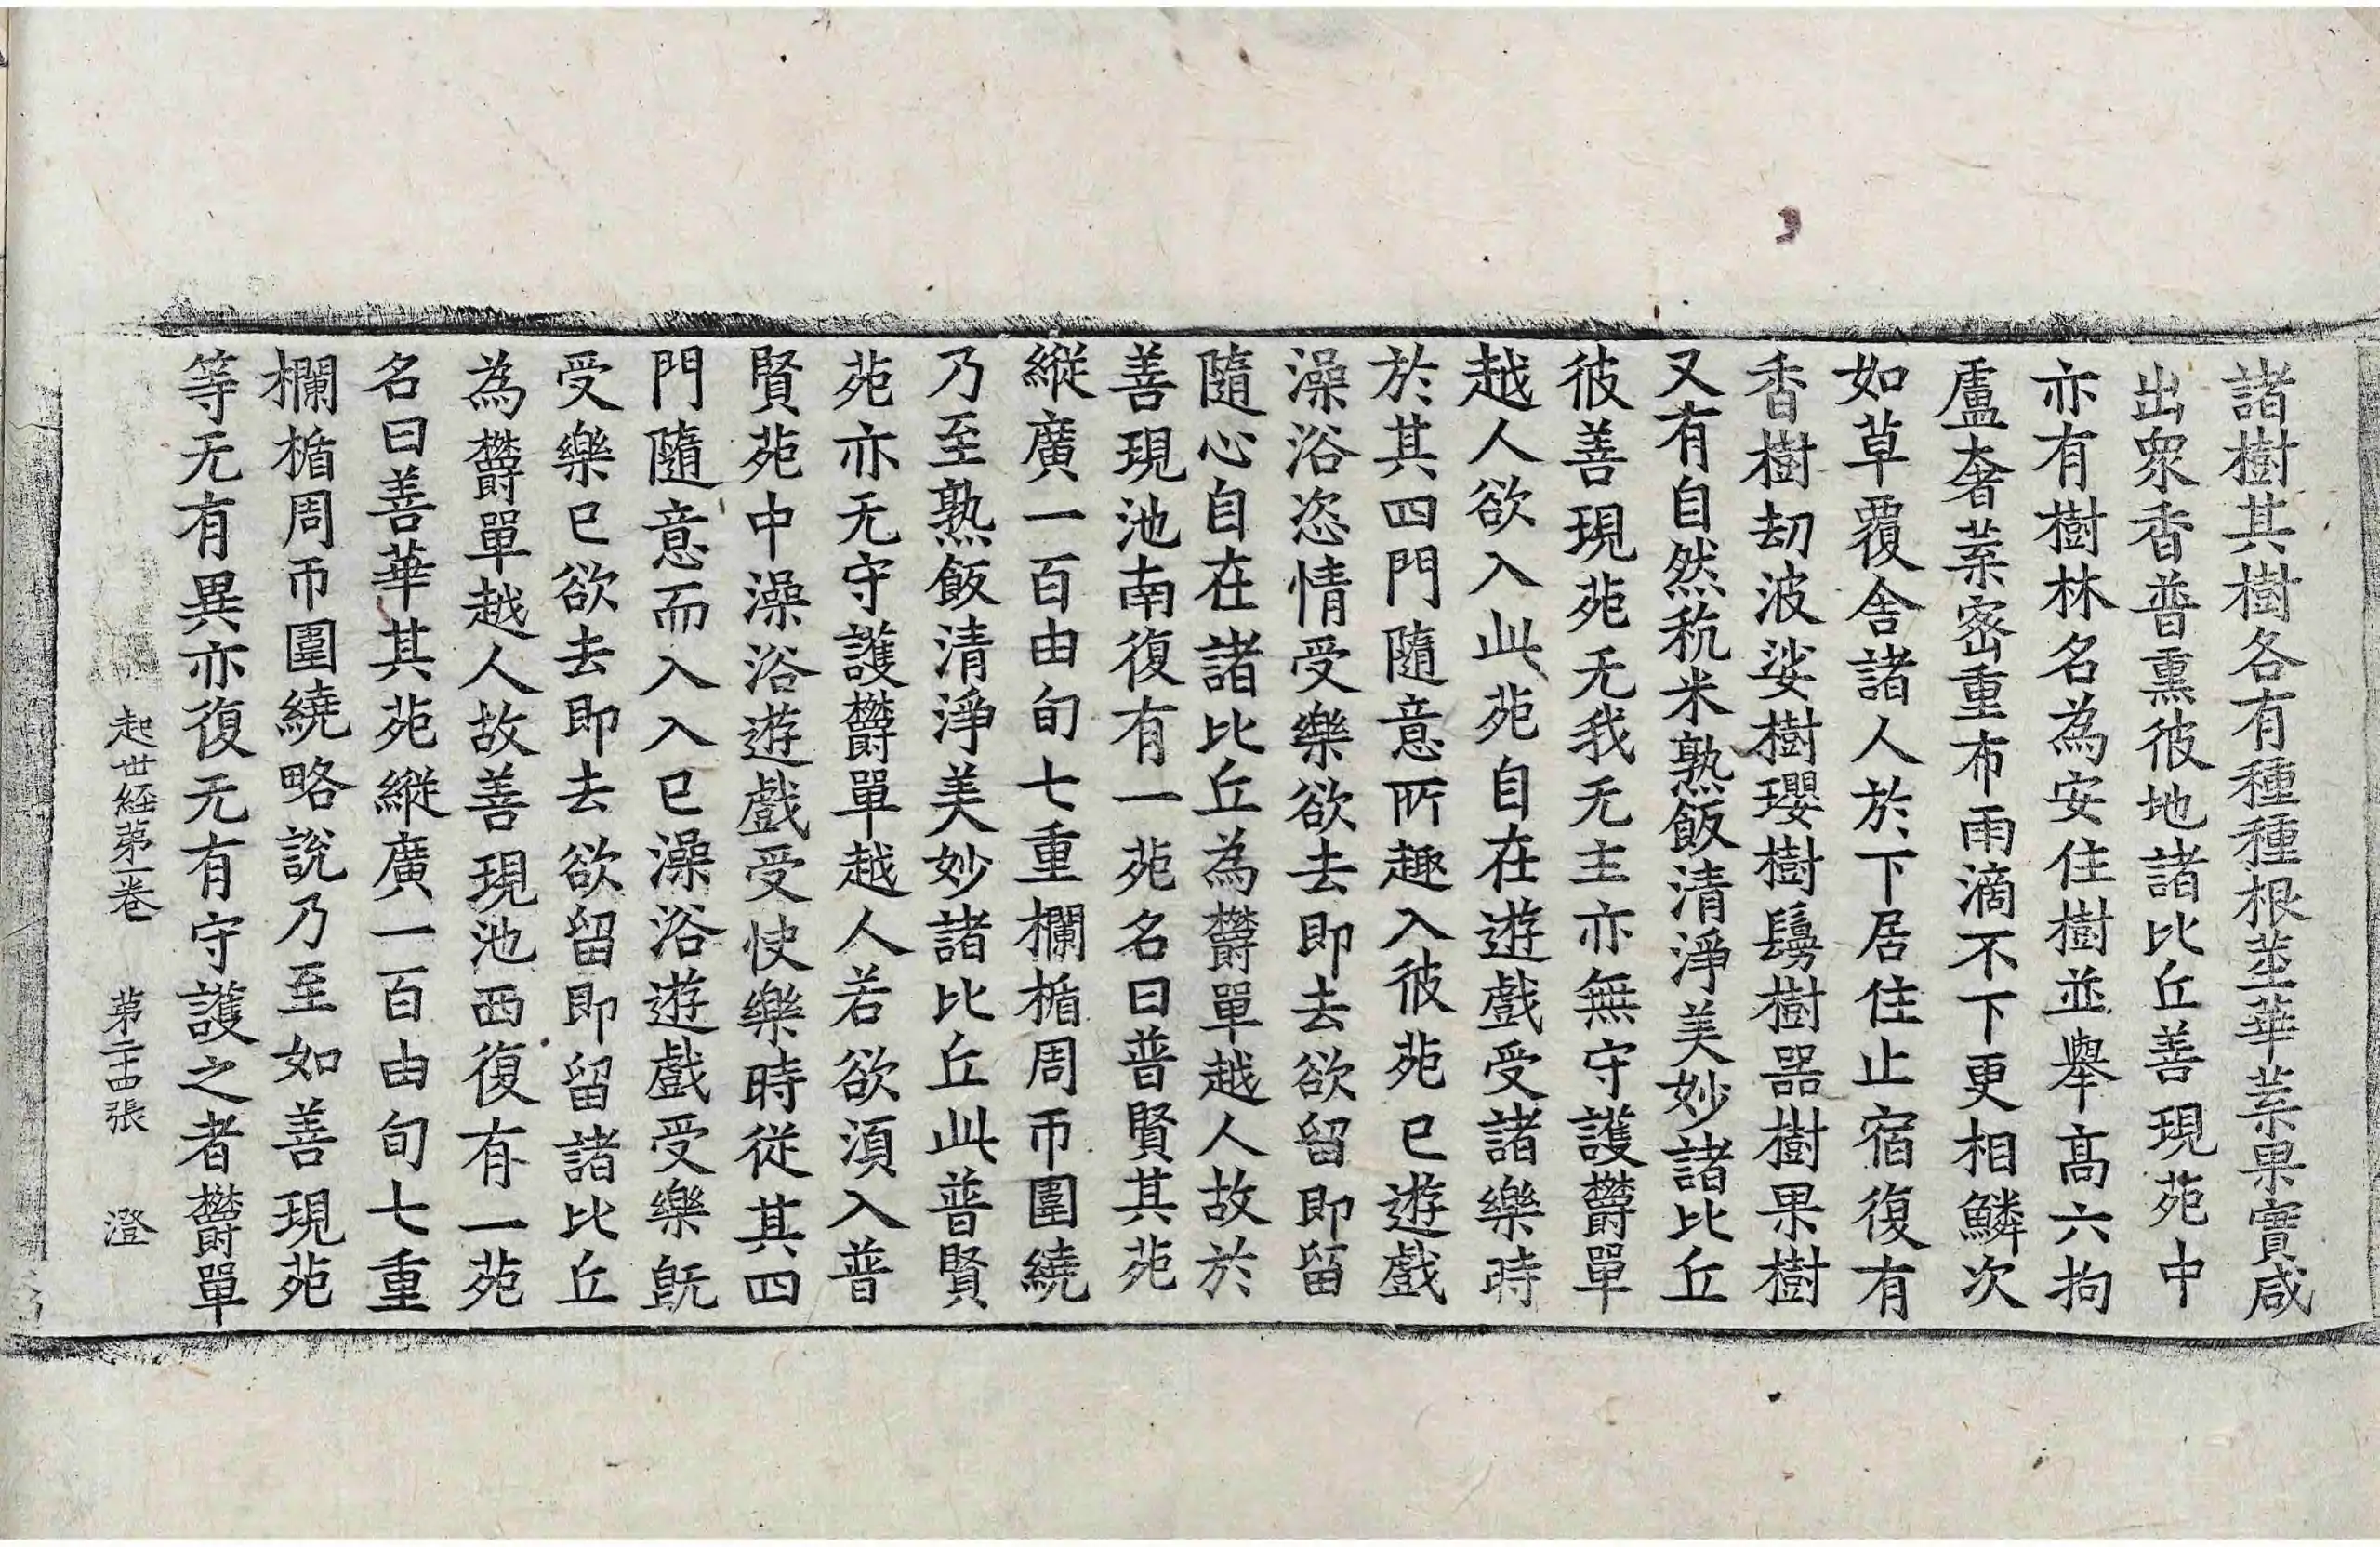 諸樹其樹各有種種根莖華葉果實咸
出衆香普熏彼地諸比丘善現苑中
亦有樹林名為安住樹並舉高六拘
盧奢葉密重布雨滴不下更相鱗次
如草覆舍諸人於下居住止宿復有
香樹劫波娑樹瓔樹鬘樹器樹果樹
又有自然秔米熟飯清淨美妙諸比丘
彼善現苑无我无主亦無守護欝單
越人欲入此苑自在遊戲受諸樂時
於其四門隨意所趣入彼苑已遊戲
澡浴恣情受樂欲去即去欲留即留
隨心自在諸比丘為欝單越人故於
善現池南復有一苑名曰普賢其苑
縱廣一百由旬七重欄楯周帀圍繞
乃至熟飯清淨美妙諸比丘此普賢
苑亦无守護欝單越人若欲須入普
賢苑中澡浴遊戲受快樂時從其四
門隨意而入入已澡浴遊戲受樂旣
受樂已欲去即去欲留即留諸比丘
為欝單越人故善現池西復有一苑
名曰善華其苑縱廣一百由旬七重
欄楯周帀圍繞略說乃至如善現苑
等无有異亦復无有守護之者欝單
起世経第一卷 第二十四張 澄